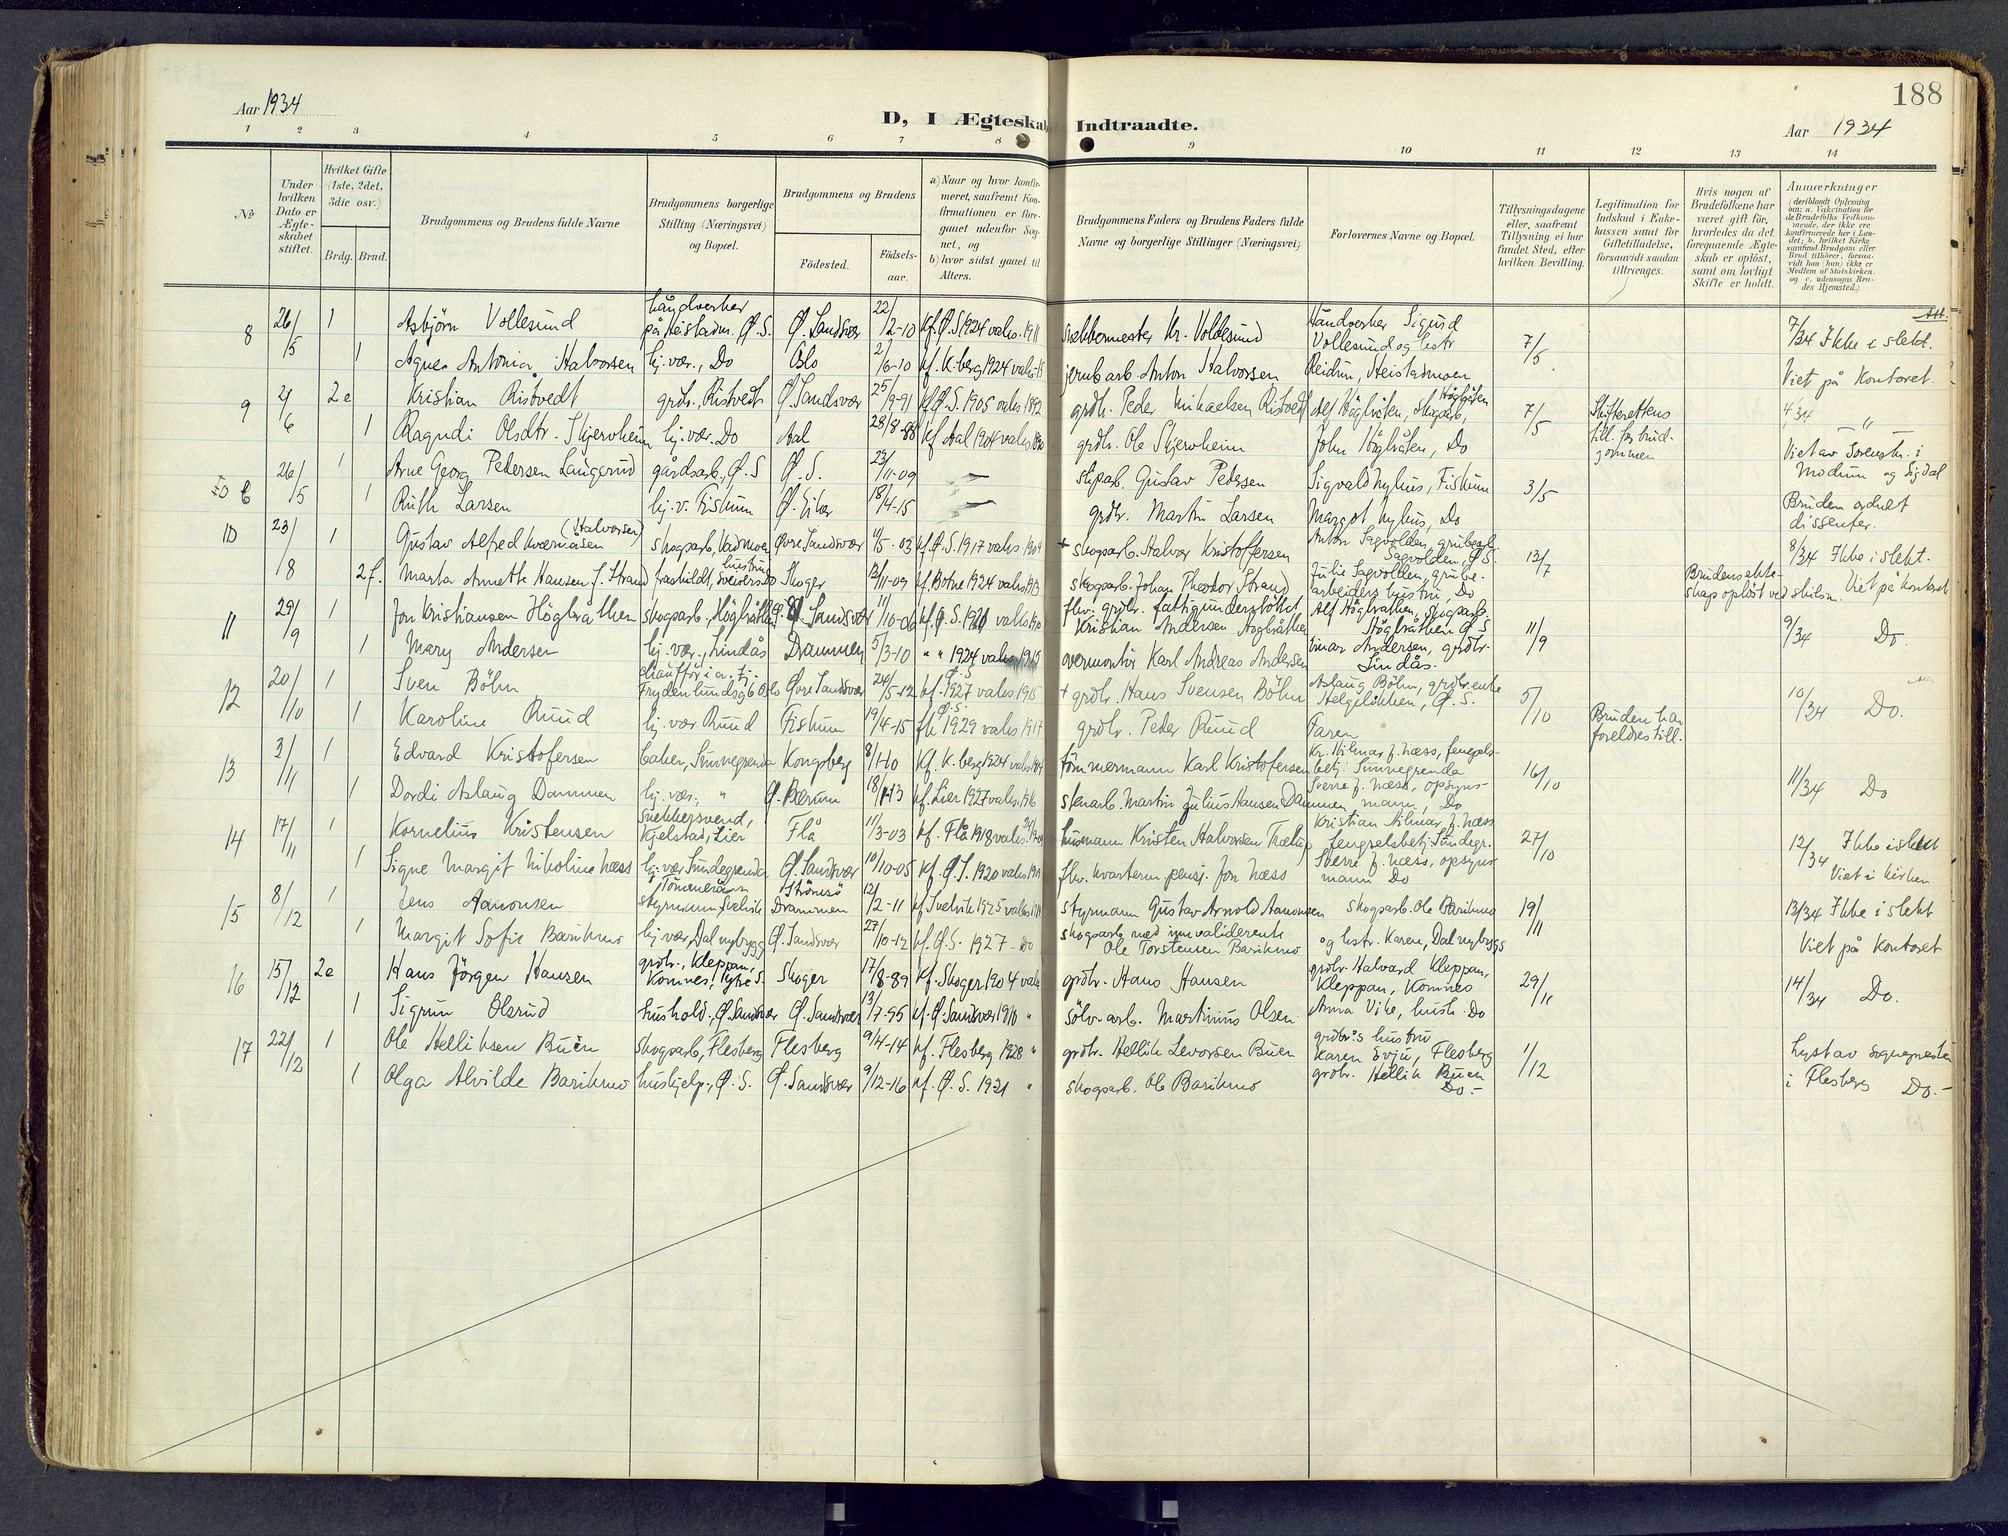 188
Aar 1934
D, I Ægteskab Indtraadte.
Aar 1934
1 2 3 4 5 6 7 8 9 10 11 12 13 14
No
Under hvilken Dato er Ægteskabet stiftet.
Hvilket Gifte (1ste, 2det, 3die osv.)
Brdg. Brud.
Brudgommens og Brudens fulde Navne
Brudgommens borgerlige Stilling (Næringsvei) og Bopæl.
Brudgommens og Brudens
Fødested.
Fødselsaar.
a) Naar og hvor konfirmeret, saafremt Konfirmationen er foregaaet udenfor Sognet, og
b) hvor sidst gaaet til Alters.
Brudgommens Faders og Brudens Faders fulde Navne og borgerlige Stillinger (Næringsvei)
Forlovernes Navne og Bopæl.
Tillysningsdagene eller, saafremt Tillysning ei har fundet Sted, efter hvilken Bevilling.
Legitimation for Indskud i Enkekassen samt for Giftetilladelse, forsaavidt saadan tiltrænges.
Hvis nogen af Brudefolkene har været gift før, hvorledes da det foregaaende Ægteskab er opløst, samt om lovligt Skifte er holdt.
Anmærkninger
(deriblandt Oplysning om: a. Vakcination for de Brudefolks Vedkommende, der ikke ere konfirmerede her i Landet; b. hvilket Kirkesamfund Brudgom eller Brud tilhører, forsaavidt han (hun) ikke er Medlem af Statskirken, og c. udensogns Brudes Hjemsted.)
8 26/5 1 Asbjörn Vollesund håndverker på Heistadm. Ø.S. Ø. Sandsvær 22/2-10 kf. Ø.S 1924 vaks. 1911 snekkermester Kr. Voldesund Håndverker Sigurd Vollesund og hstr 7/5 7/34 Ikke i slekt.
1 Agnes Antonia Halvorsen hj. vær., Do Oslo 2/6-10 kf. K.berg 1924 vaks. jernb.arb. Anton Halvorsen Reidun, Heistadmoen Viet på Kontoret.
9 2/6 2e Kristian Ristvedt grdbr., Ristvedt Ø. Sandsvær 25/9-91 kf. Ø.S. 1905 vaks 1892 grdbr. Peder Mikaelsen Ristvedt Alf Högbråten, Skogarb., Högbråten 7/5 Skifterettens till. for brudgommen 4/34 "
1 Ragndi Olsdtr. Skjervheim hj. vær. Do Aal 28/8-86 kf. Aal 1904 vaks grdbr. Ole Skjervheim John Högbråten, Do Viet av Sorenskr. i
26/5 1 Arne Georg Petersen Langerud gårdsarb., Ø.S Ø.S. 23/11-09 — skparb. Gustav Petersen Sigvald Nyhus, Fiskum 3/5 Modum og Sigdal
1 Ruth Larsen hj. v. Fiskum Ø. Eiker 18/4-15 — grdbr. Martin Larsen Margot Nyhus, Do Bruden ordnet dissenter.
10 23/8 1 Gustav Alfred Kværnåsen (Halvorsen) skogsarb., Vadmoen Øvre Sandsvær 10/5-03 kf. Ø.S. 1917 vaks. 1904 + skogsarb. Halvor Kristoffersen Anton Sagvolden, grubearb. Sagvolden, Ø.S. 13/7 8/34 Ikke i slekt.
2f. Marta Annette Hansen f. Strand fraskildt, hustru Skoger 13/11-09 kf. Botne 1924 vaks 1913 skogsarb. Johan Theodor Strand Julie Sagvolden, grubearbeiders hustru, Do Brudens ekteskap opløst ved skilsm. Viet på kontoret
11 29/9 1 Jon Kristiansen Högbråthen skogsarb., Högbråthen Ø. Sandsvær 11/10-06 kf. Ø.S. vaks. fhv. grdbr. fattigunderstöttet Kristian Andersen Högbråthen Alf Högbråthen, skogsarb. Högbråthen Ø S 11/9 9/34 Do.
1 Mary Andersen hj. vær., Lindås Drammen 5/3-10 " " 1924 vaks 1915 overmontör Karl Andreas Andersen Einar Andersen, grdbr. Lindås.
12 20/10 1 Sven Böhn chauffør i a. tj. Frydenlundsgt. 6 Oslo Øvre Sandsvær 24/5-12 kf. Ø.S 1927 vaks 1915 + grdbr. Hans Svensen Böhn Aslaug Böhn, grdbr.enke Helgelökken, Ø.S. 5/10 10/34 Do.
1 Karoline Ruud hj. vær Ruud Fiskum 19/4-15 kf. Ø.S. 1929 vaks 1917 grdbr. Peder Ruud Faren Bruden har foreldres till.
13 3/11 1 Edvard Kristofersen baker, Sunnegrenda Kongsberg 8/1-10 kf. K.berg 1924 vaks tömmermann Karl Kristofersen Kr. Hilmar f. Næss, fengselsbetj. Sunnegrenda 16/10 11/34 Do
1 Dordi Aslaug Dammen hj. vær., " Ø. Bærum 18/1-13 kf. Lier 1927 vaks. 1916 stenarb. Martin Julius Hansen Dammen Sverre f. Næss, opsynsmann, Do
14 17/11 1 Kornelius Kristensen Snekkersvend, Kjelstad, Lier Flå 11/3-03 kf. Flå 1918 vaks. husmann Kristen Halvorsen Trælhus Kristian Hilmar f. Næss fengselsbetj. Sundegr. 27/10 12/34 Ikke i slekt
1 Signe Margit Nikoline Næss hj. vær Sundegrenda Ø. Sandsvær 10/10-05 kf. Ø.S. 1920 vaks. fhv. kvarterm. pensj. Jon Næss Sverre f. Næss, opsynsmann Do Viet i kirken
15 8/12 1 Jens Aanonsen styrmann, Svelvik Strömsö Drammen 12/2-11 kf. Svelvik 1925 vaks styrmann Gustav Arnold Aanonsen skogsarb. Ole Barikmo 19/11 13/34 Ikke i slekt
1 Margit Sofie Barikmo hj. vær, Dal nybygg Ø. Sandsvær 27/10-12 kf. Ø.S. 1927 - Do skogsarb. med invaliderente Ole Torstensen Barikmo og hstr. Karen, Dal nybygg Viet på Kontoret
16 15/12 2e Hans Jörgen Hansen grdbr., Kleppan, Komnes, Ytre S. Skoger 17/8-89 kf. Skoger 1904 vaks grdbr. Hans Hansen grdbr. Halvard Kleppan, Kleppan, Komnes 29/11 14/34 Do.
1 Sigrun Olsrud hushold., Ø. Sandsvær Ø. Sandsvær 13/7-95 kf. Ø. Sandsvær 1910 " sölv.arb. Martinius Olsen Anna Vike, hush. Do
17 22/12 1 Ole Helliksen Buin skogsarb., Flesberg Flesberg 9/4-14 kf. Flesberg 1928 " grdbr. Hellik Levorsen Buen grdbr.s hustru Karen Evju, Flesberg 1/12 Lyst av sognepresten
1 Olga Alvilde Barikmo hushjelp., Ø.S. Ø. Sandsvær 9/12-16 kf. Ø.S. 1931 " skogsarb. Ole Barikmo grdbr. Hellik Buen Do.- i Flesberg Do.-